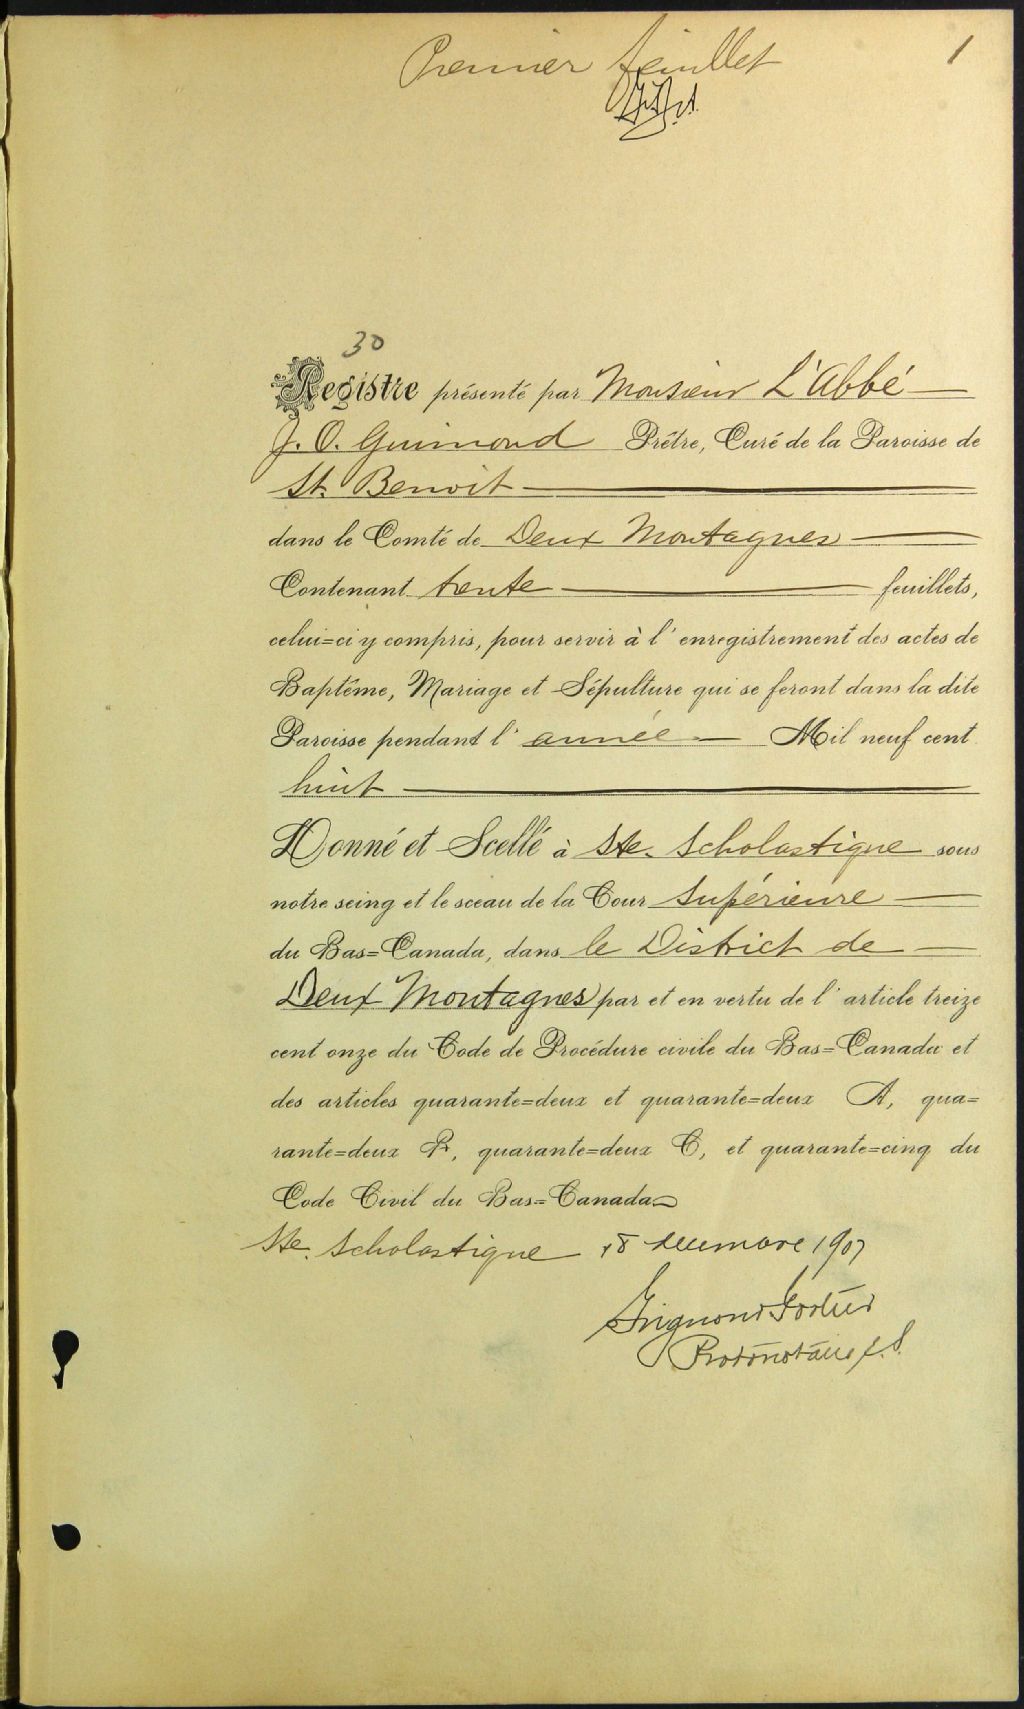 Premier feuillet
1
30
Registre présenté par Monsieur L'Abbé
J. O. Guimond Prêtre, Curé de la Paroisse de
St. Benoit
dans le Comté de Deux Montagnes
Contenant trente feuillets,
celui=ci y compris, pour servir à l'enregistrement des actes de
Baptême, Mariage et Sépulture qui se feront dans la dite
Paroisse pendant l'année Mil neuf cent
huit
Donné et Scellé à Ste. Scholastique sous
notre seing et le sceau de la Cour Supérieure
du Bas=Canada, dans le District de
Deux Montagnes par et en vertu de l'article treize
cent onze du Code de Procédure civile du Bas=Canada et
des articles quarante=deux et quarante=deux A, qua=
rante=deux B, quarante=deux C, et quarante=cinq du
Code Civil du Bas=Canada
Ste. Scholastique 18 decembre 1907
Grignon & Fortier
Protonotaire C.S.